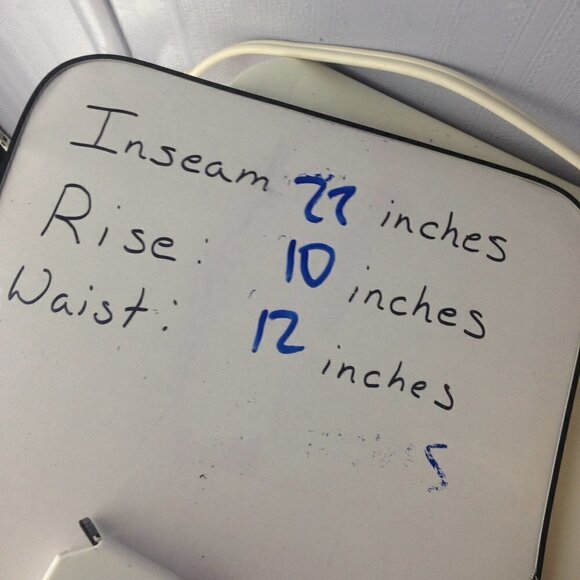 Inseam inches
Rise: 10 inches
Waist: 12 inches